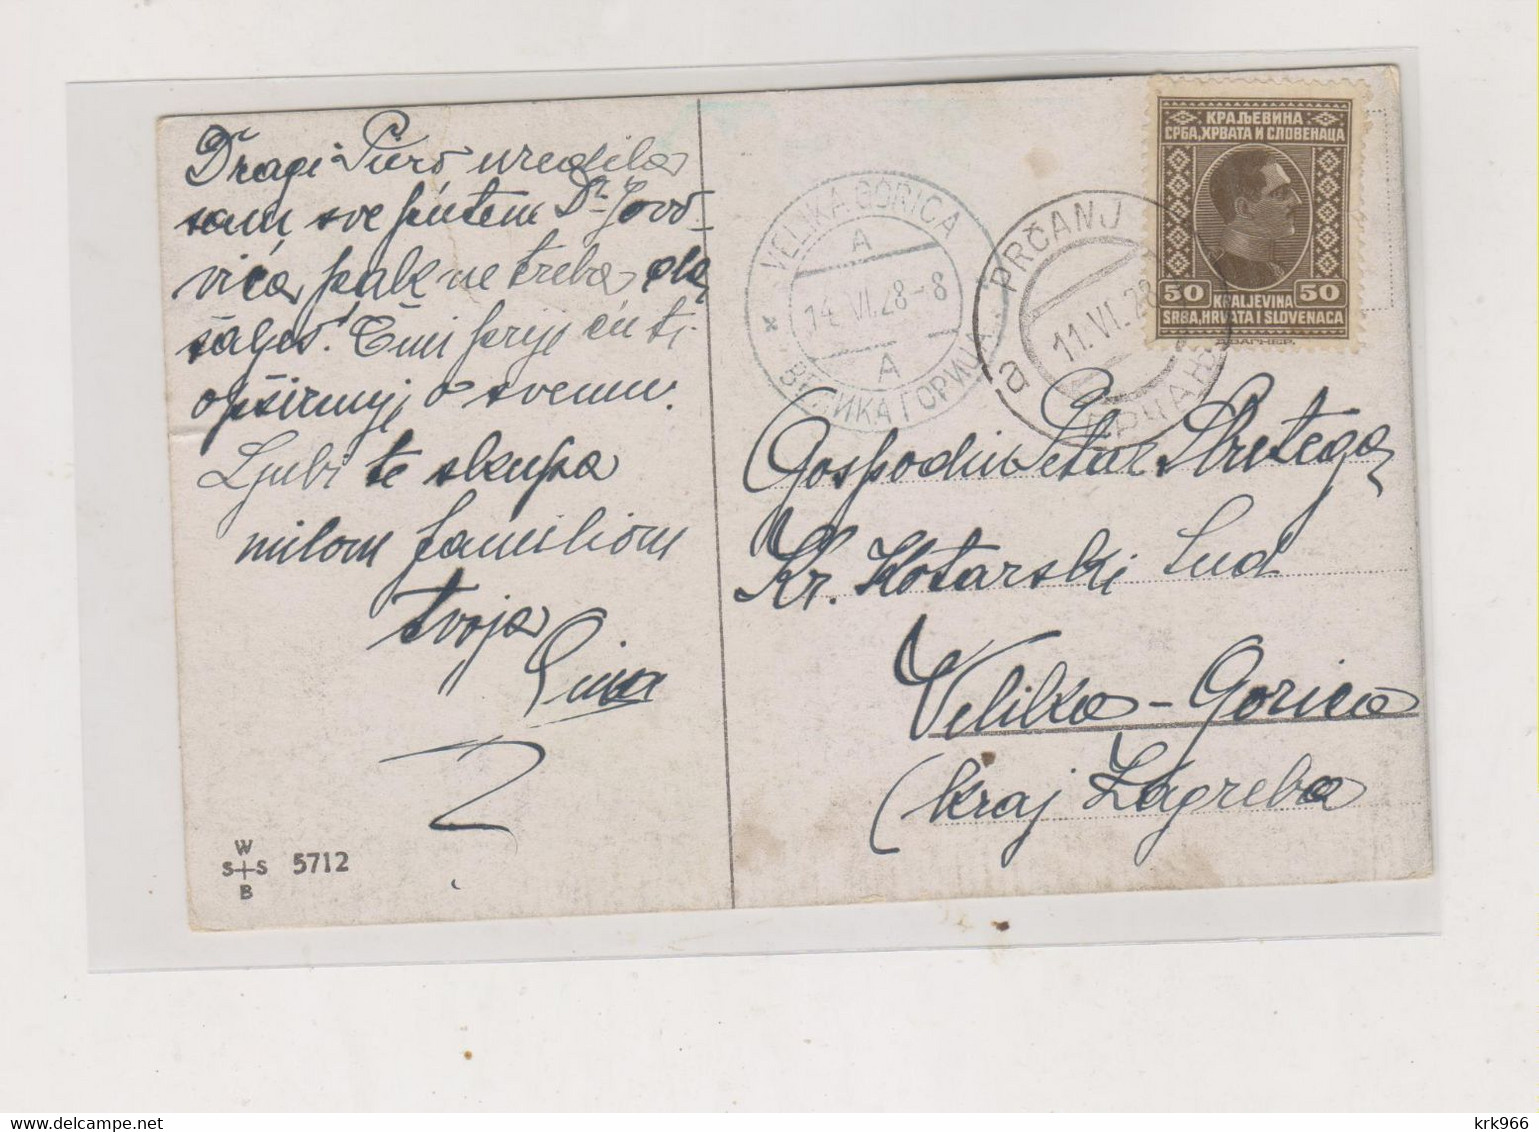 Dragi Piero uredila
sam sve putem Dr Jovo-
vića pak ne treba da
šalješ. Čim prije ću ti
opširnije o svemu.
Ljubi te skupa
milom familiom
tvoja
W
S+S 5712
B
VELIKA GORICA
A
14.VI.28-8
A
ВЕЛИКА ГОРИЦА
PRČANJ
11.VI.28
a
ПРЧАЊ
КРАЉЕВИНА
СРБА, ХРВАТА И СЛОВЕНАЦА
50 KRALJEVINA 50
SRBA, HRVATA I SLOVENACA
Д.ВАГНЕР.
Gospodin Petar Strutega
Kr. Kotarski Sud
Velika-Gorica
(kraj Zagreba
krk966